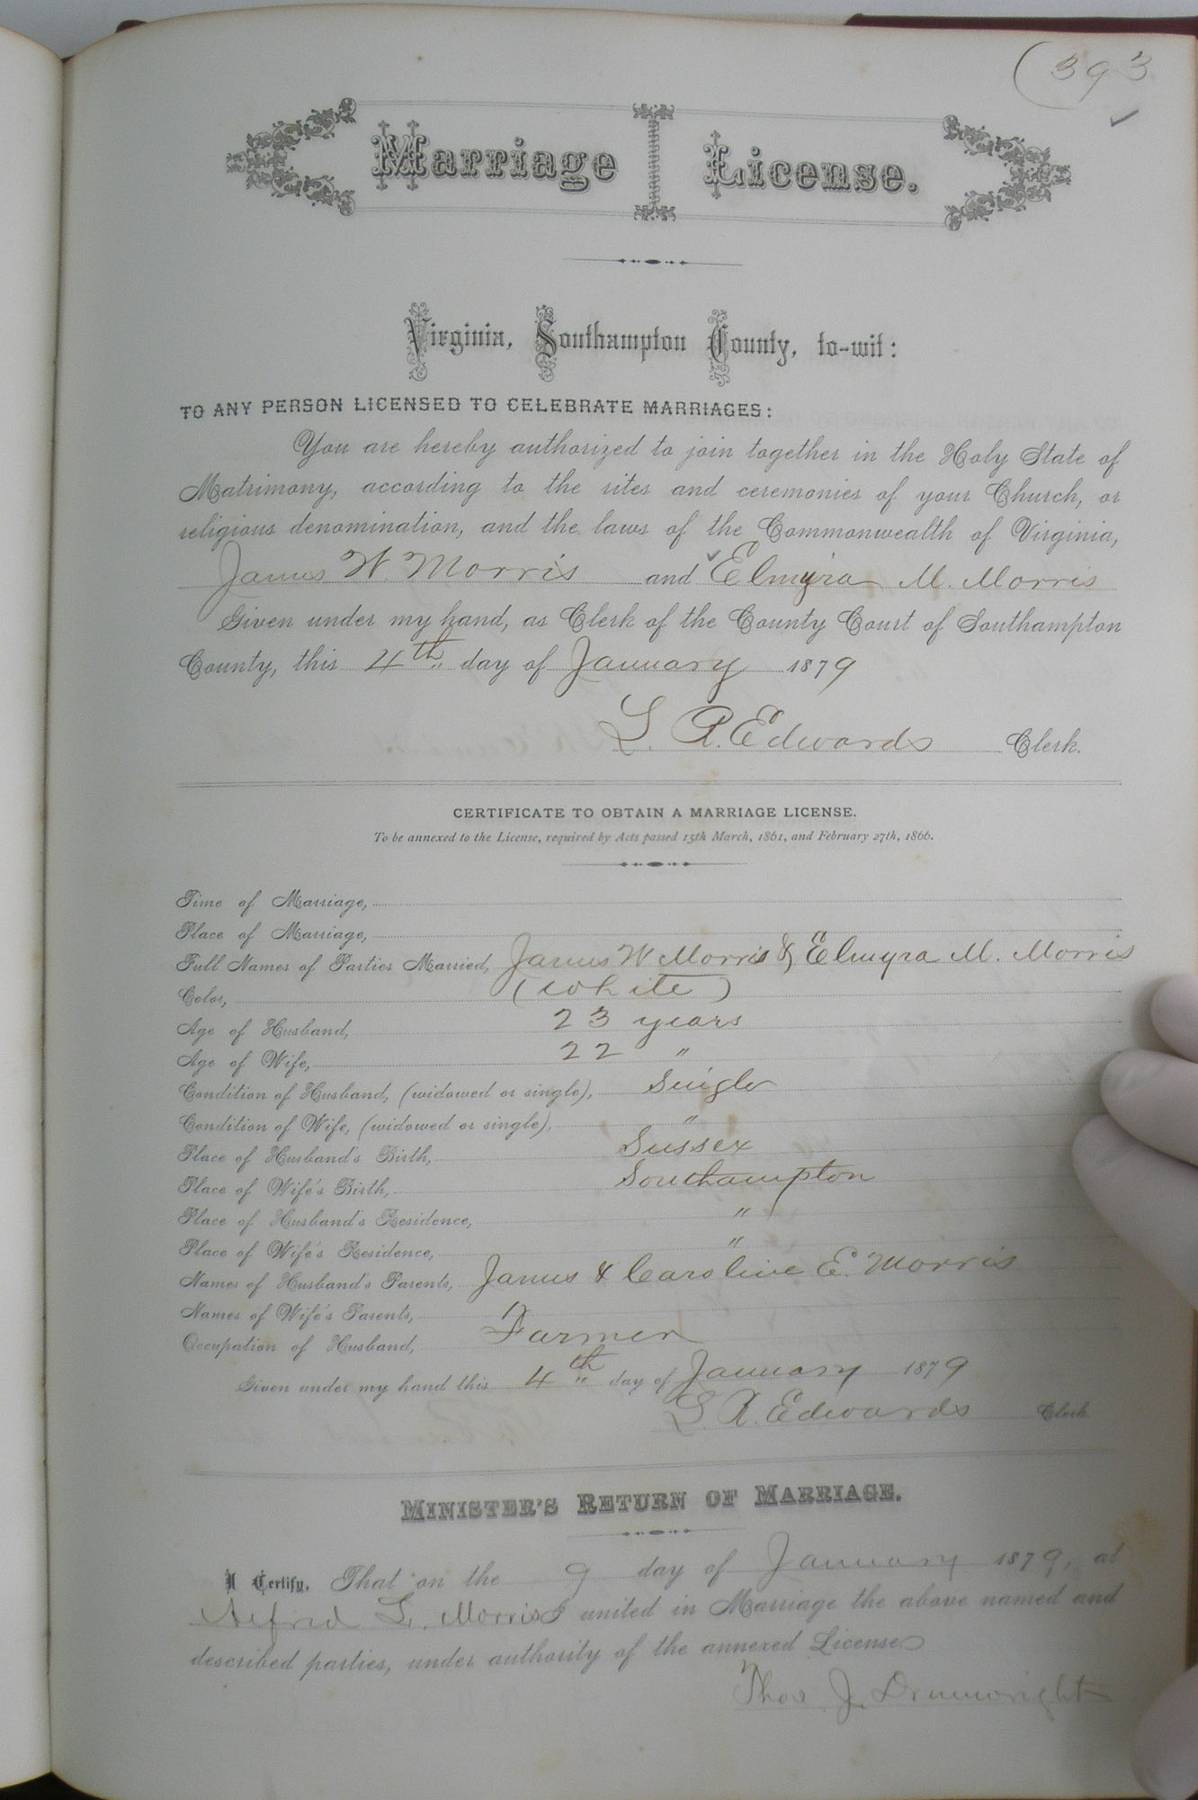 (393
Marriage License.
Virginia, Southampton County, to-wit:
TO ANY PERSON LICENSED TO CELEBRATE MARRIAGES:
You are hereby authorized to join together in the Holy State of
Matrimony, according to the rites and ceremonies of your Church, or
religious denomination, and the laws of the Commonwealth of Virginia,
James W. Morris and Elmyra M. Morris
Given under my hand, as Clerk of the County Court of Southampton
County, this 4th day of January 1879
L. R. Edwards Clerk.
CERTIFICATE TO OBTAIN A MARRIAGE LICENSE.
To be annexed to the License, required by Acts passed 15th March, 1861, and February 27th, 1866.
Time of Marriage,
Place of Marriage,
Full Names of Parties Married, James W Morris & Elmyra M. Morris
Color, (White)
Age of Husband, 23 years
Age of Wife, 22 "
Condition of Husband, (widowed or single), Single
Condition of Wife, (widowed or single), "
Place of Husband's Birth, Sussex
Place of Wife's Birth, Southampton
Place of Husband's Residence, "
Place of Wife's Residence, "
Names of Husband's Parents, James & Caroline E. Morris
Names of Wife's Parents,
Occupation of Husband, Farmer
Given under my hand this 4th day of January 1879
L R. Edwards Clerk
MINISTER'S RETURN OF MARRIAGE.
I Certify, That on the 9 day of January 1879, at
Alfred L. Morris I united in Marriage the above named and
described parties, under authority of the annexed License
Thos. J. Drumwright